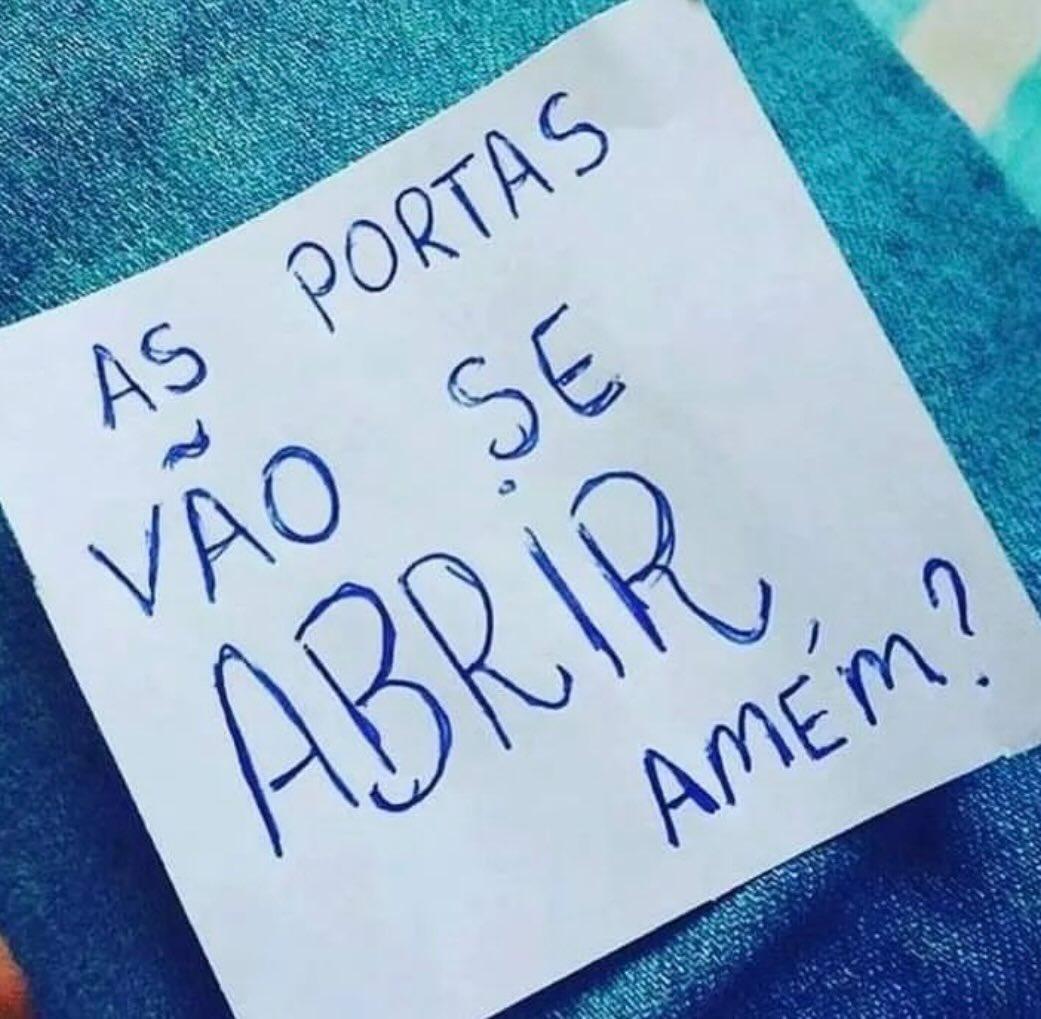 AS PORTAS
VÃO SE
ABRIR
AMÉM?